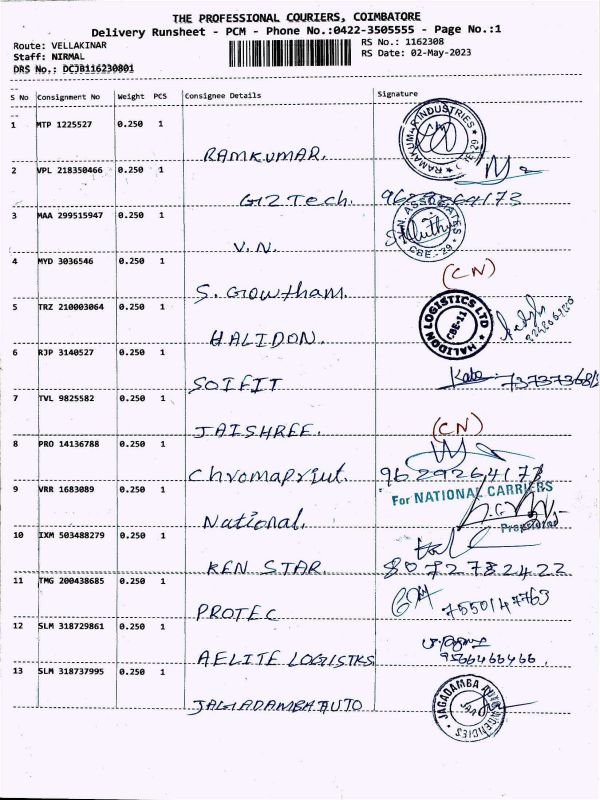 THE PROFESSIONAL COURIERS, COIMBATORE
Delivery Runsheet - PCM - Phone No.:0422-3505555 - Page No.:1
Route: VELLAKINAR
RS No.: 1162308
Staff: NIRMAL
RS Date: 02-May-2023
DRS No.: DCJB116230801
S No Consignment No Weight PCS Consignee Details Signature
1 MTP 1225527 0.250 1
RAMKUMAR.
RAMAKUMAR INDUSTRIES CBE-29
2 VPL 218350466 0.250 1
GI2 Tech.
3 MAA 299515947 0.250 1
V.N.
V.N. ASSOCIATES CBE-29
4 MYD 3036546 0.250 1
S. Gowtham.
(CN)
5 TRZ 210003064 0.250 1
HALIDON.
HALIDON LOGISTICS LTD CBE-11
6 RJP 3140527 0.250 1
SOIFIT
7 TVL 9825582 0.250 1
JAISHREE.
(CN)
8 PRO 14136788 0.250 1
Chromaprint.
9629264173
9 VRR 1683089 0.250 1
National.
For NATIONAL CARRIERS
Proprietor
10 IXM 503488279 0.250 1
KEN STAR.
8072782422
11 TMG 200438685 0.250 1
PROTEC
7550147763
12 SLM 318729861 0.250 1
AELITE LOGISTKS
9566466466.
13 SLM 318737995 0.250 1
JAGADAMBA AUTO
JAGADAMBA AUTO AGENCIES